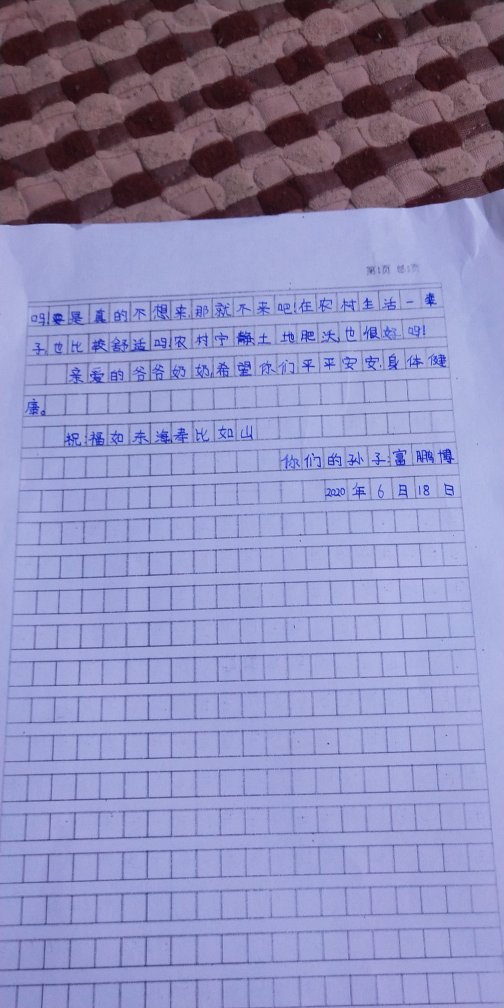 第1页 共1页
吗!要是真的不想来,那就不来吧!在农村生活一辈
子,也比较舒适吗!农村宁静,土地肥沃也很好吗!
亲爱的爷爷奶奶,希望你们平平安安,身体健
康。
祝:福如东海寿比如山
你们的孙子:富鹏博
2020年6月18日